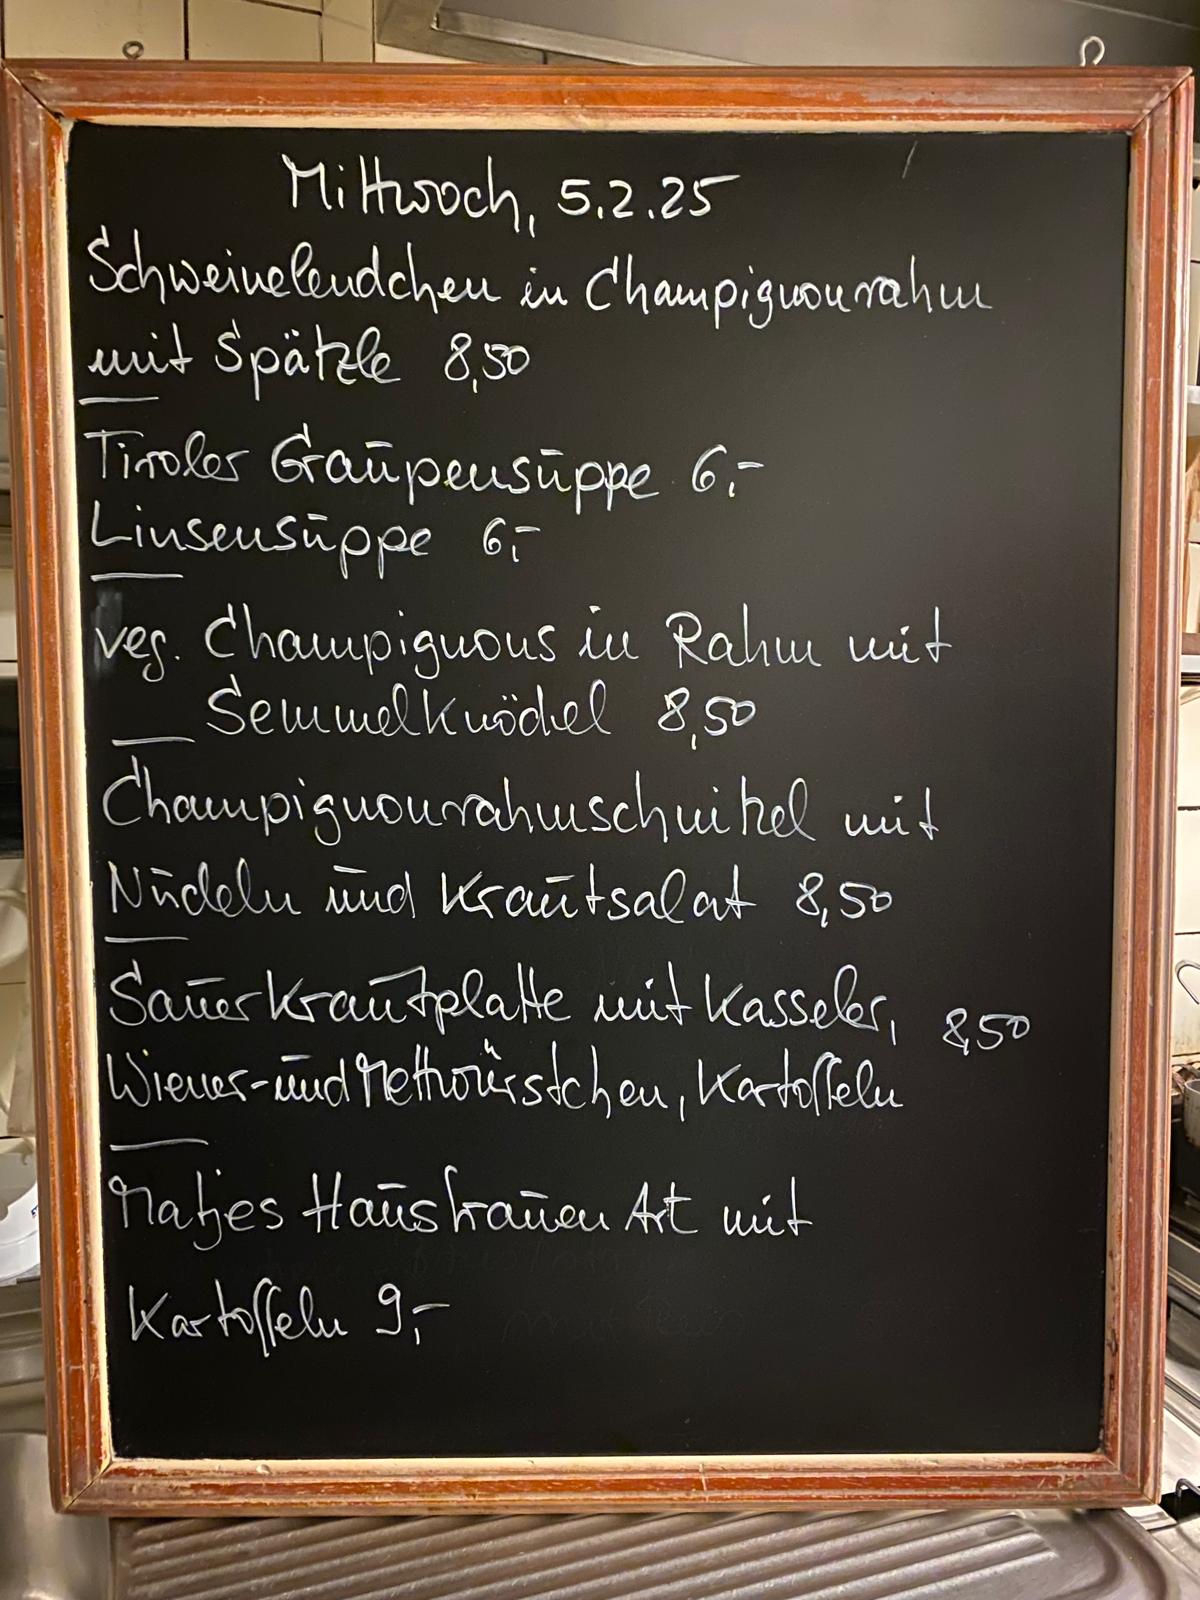 Mittwoch, 5.2.25
Schweinelendchen in Champignonrahm
mit Spätzle 8,50
Tiroler Graupensuppe 6,-
Linsensuppe 6,-
veg. Champignons in Rahm mit
Semmelknödel 8,50
Champignonrahmschnitzel mit
Nudeln und Krautsalat 8,50
Sauerkrautplatte mit Kasseler, 8,50
Wiener- und Mettwürstchen, Kartoffeln
Matjes Hausfrauen Art mit
Kartoffeln 9,-